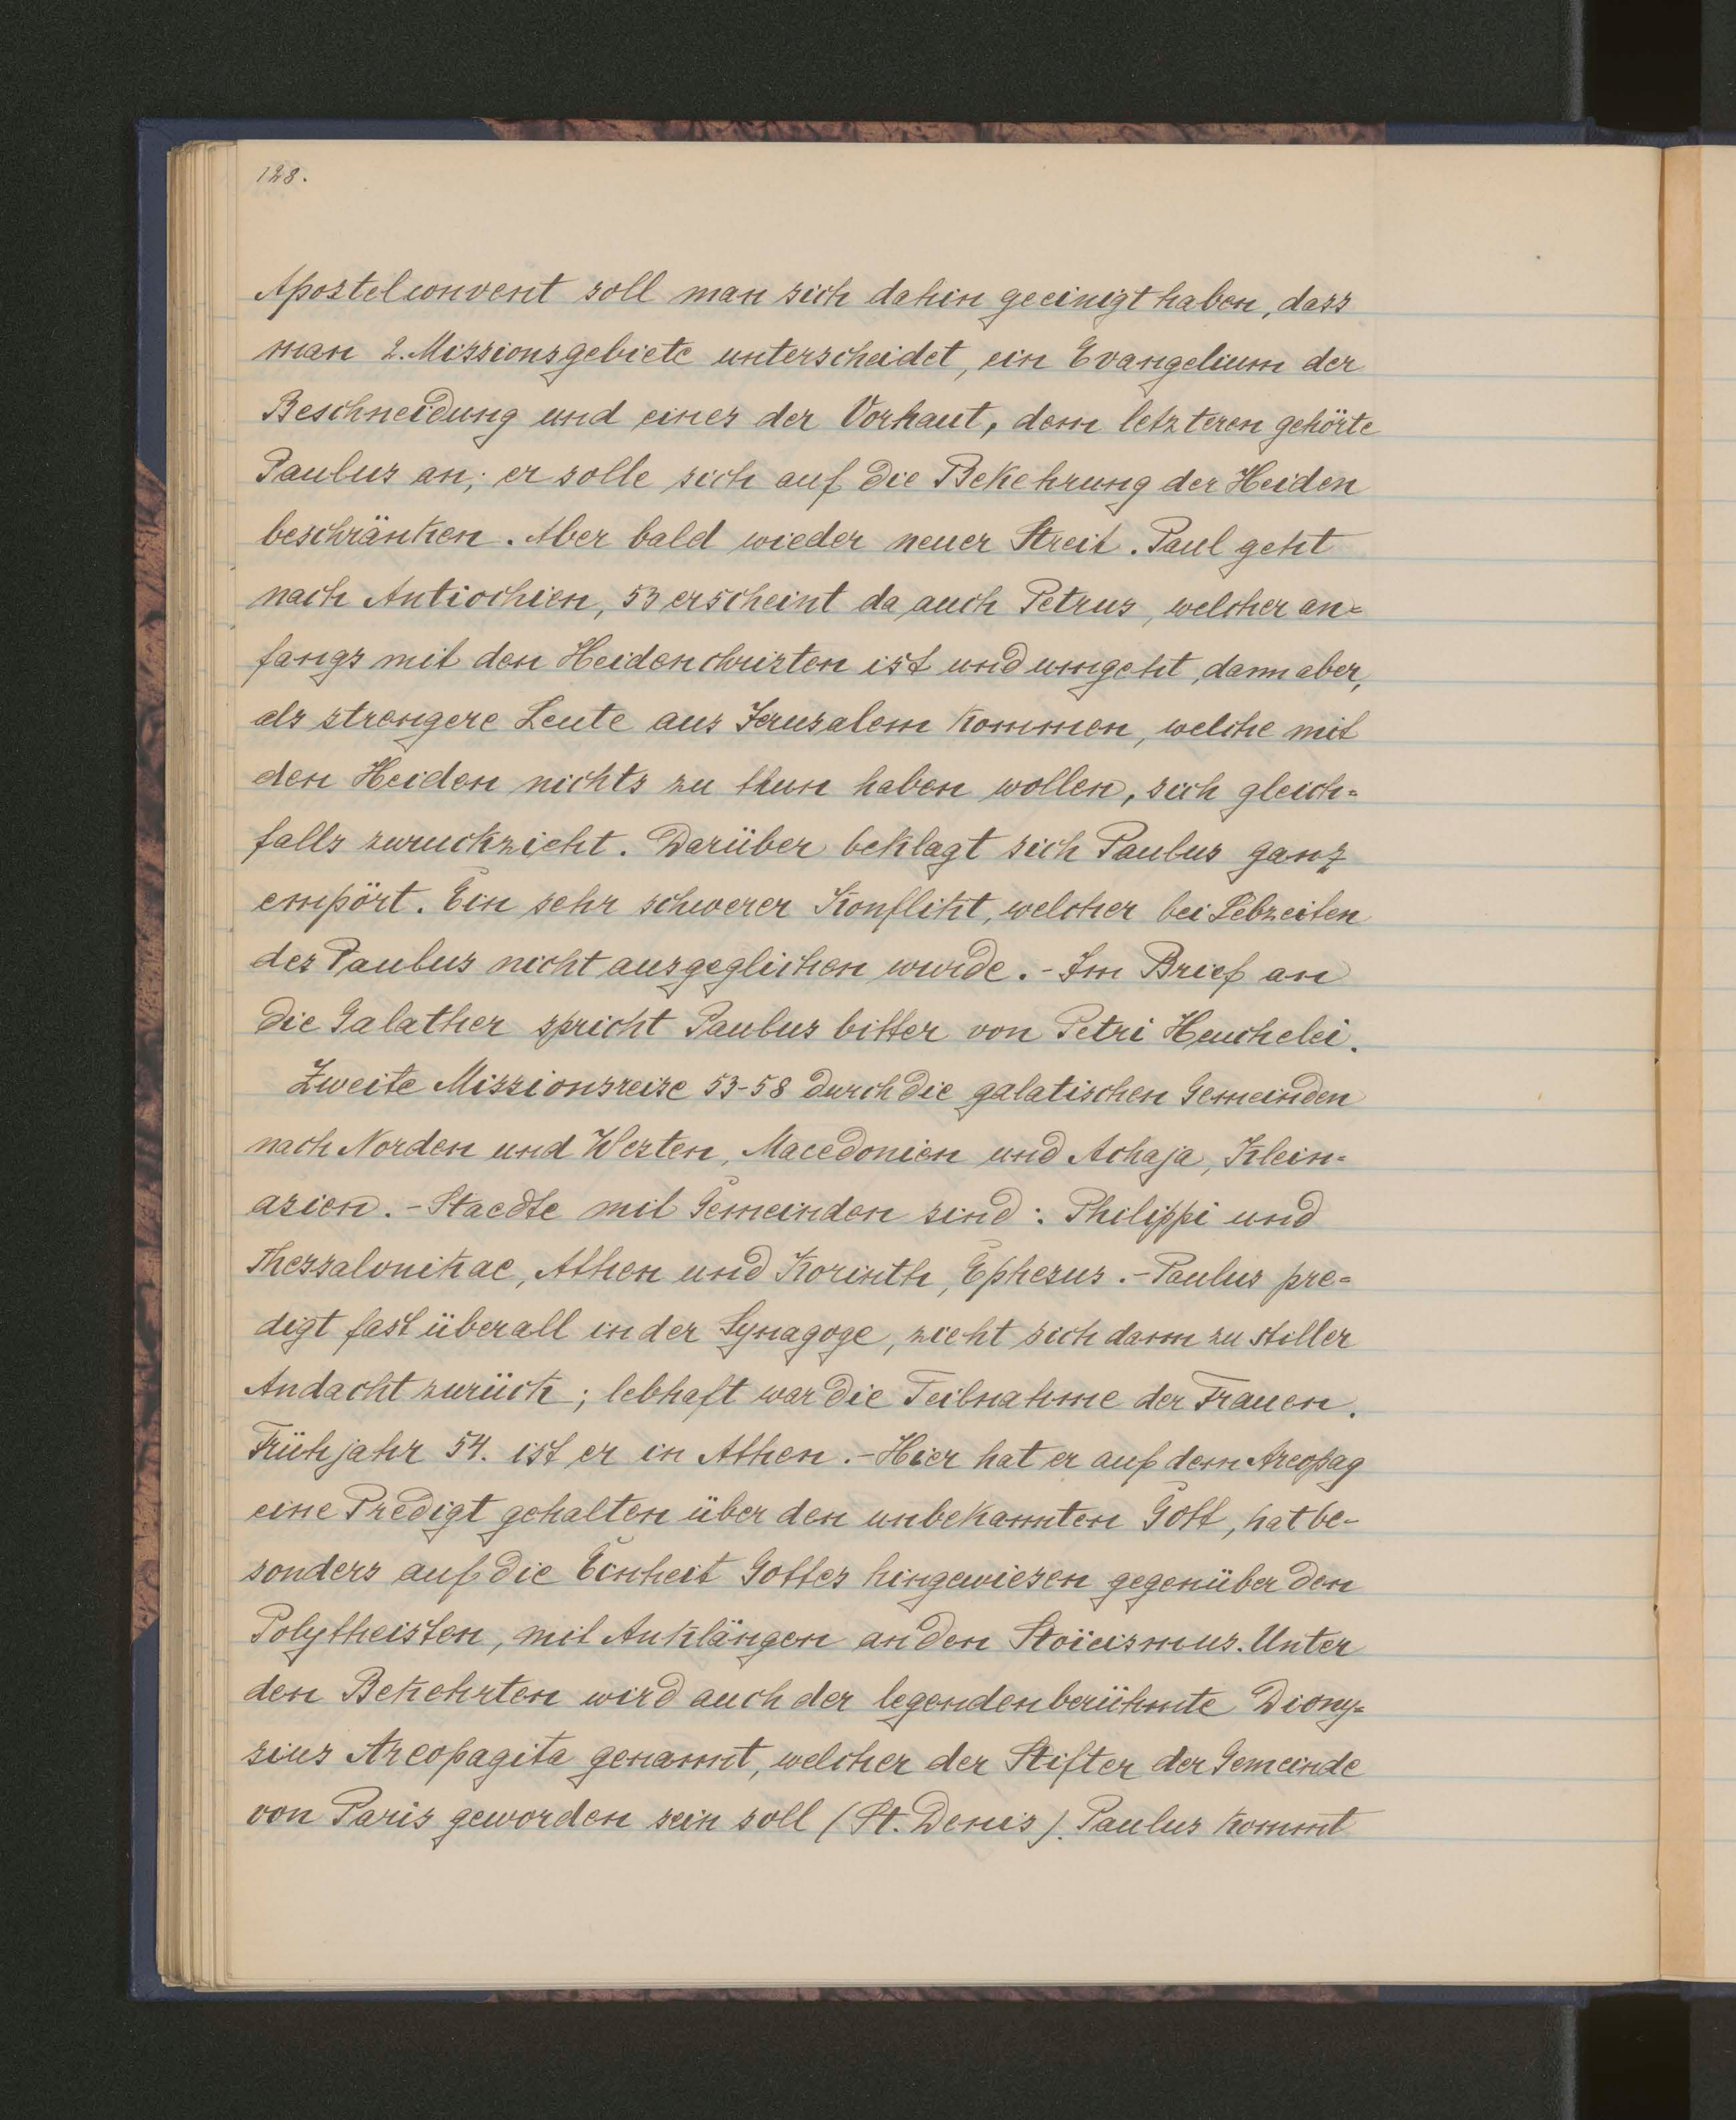 128.
Apostelconvent soll man sich dahin geeinigt haben, dass
man 2. Missionsgebiete unterscheidet, ein Evangelium der
Beschneidung und eines der Vorhaut, dem letzteren gehörte
Paulus an; er solle sich auf die Bekehrung der Heiden
beschränken. Aber bald wieder neuer Streit. Paul geht
nach Antiochien, 53 erscheint da auch Petrus, welcher an=
fangs mit den Heidenchristen ist und umgeht, dann aber,
als strengere Leute aus Jerusalem kommen, welche mit
den Heiden nichts zu thun haben wollen, sich gleich=
falls zuruckzieht. Darüber beklagt sich Paulus ganz
empört. Ein sehr schwerer Konflikt, welcher bei Lebzeiten
des Paulus nicht ausgeglichen wurde. - Im Brief an
die Galather spricht Paulus bitter von Petri Heuchelei.
Zweite Missionsreise 53-58 durch die galatischen Gemeinden
nach Norden und Westen, Macedonien und Achaja, Klein=
asien. - Staedte mit Gemeinden sind: Philippi und
Thessalonikae, Athen und Korinth, Ephesus. - Paulus pre=
digt fast überall in der Synagoge, zieht sich dann zu stiller
Andacht zurück; lebhaft war die Teilnahme der Frauen.
Frühjahr 54. ist er in Athen. - Hier hat er auf dem Areopag
eine Predigt gehalten über den unbekannten Gott, hat be-
sonders auf die Einheit Gottes hingewiesen gegenüber den
Polytheisten, mit Anklängen an den Stoïcismus. Unter
den Bekehrten wird auch der legendenberühmte Diony=
sius Areopagita genannt, welcher der Stifter der Gemeinde
von Paris geworden sein soll (St. Denis). Paulus kommt